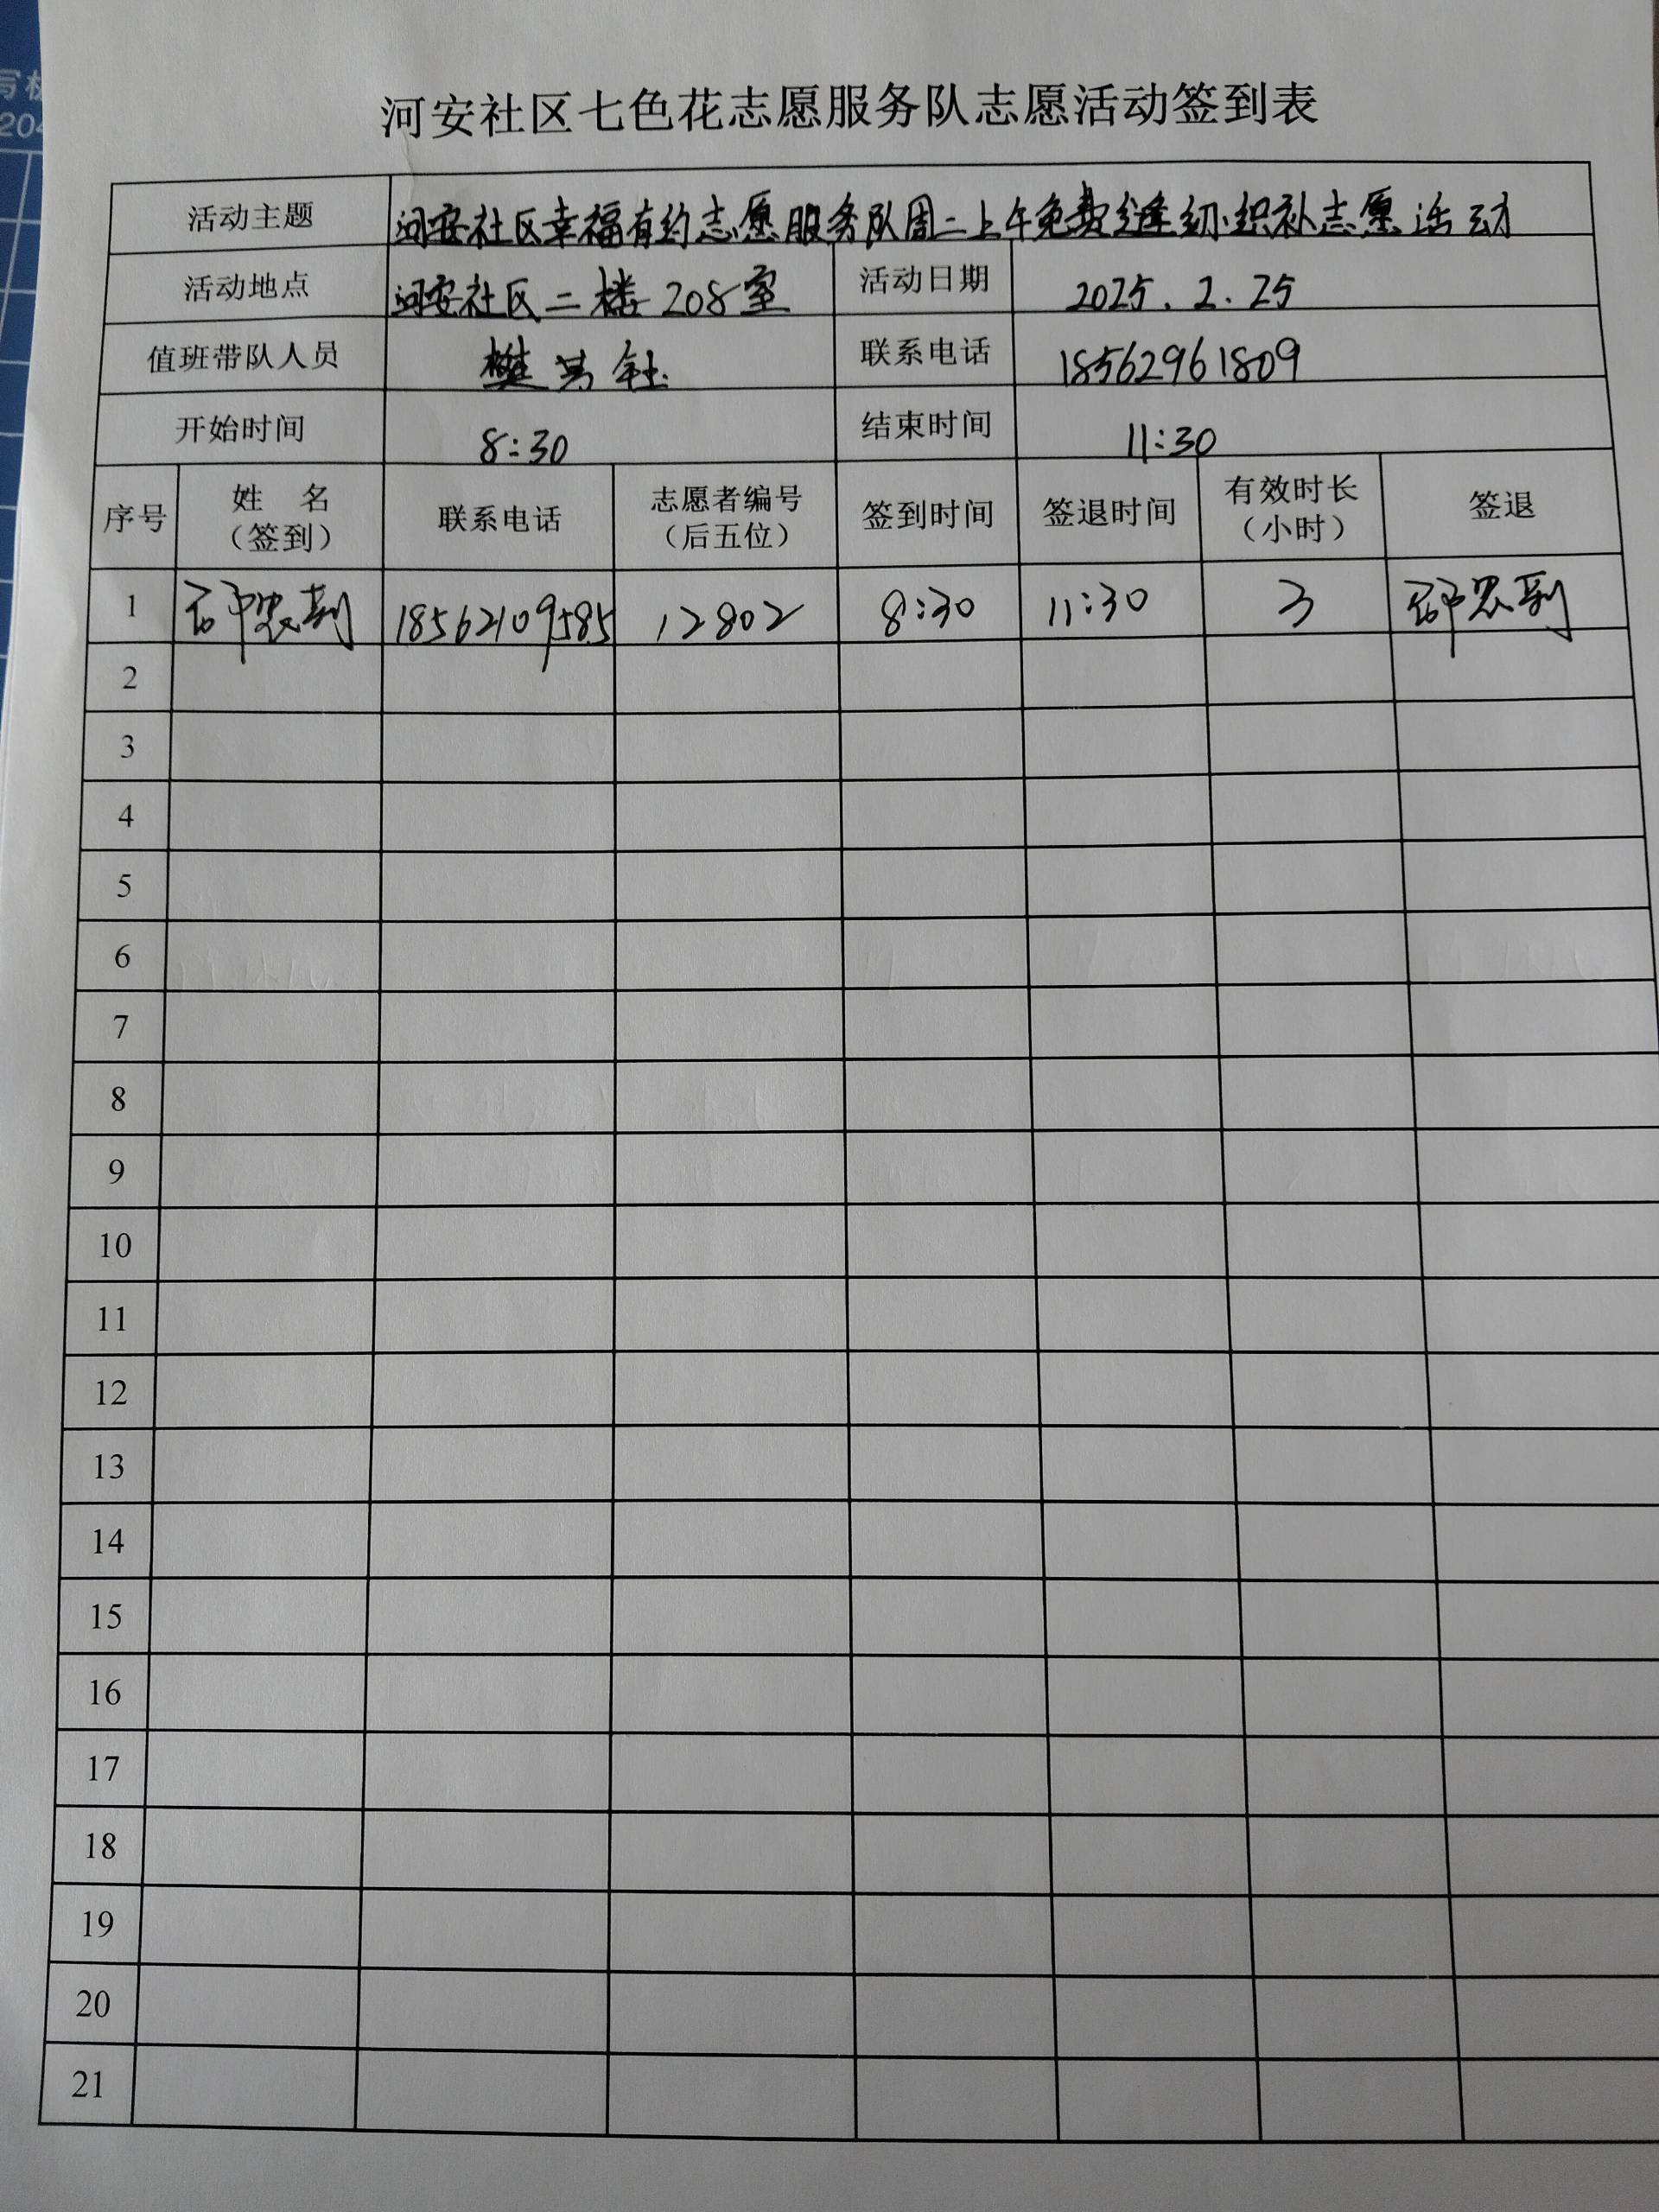 写板
204
河安社区七色花志愿服务队志愿活动签到表
活动主题 河安社区幸福有约志愿服务队周二上午免费缝纫织补志愿活动
活动地点 河安社区二楼208室 活动日期 2025.2.25
值班带队人员 樊 联系电话 18562961809
开始时间 8:30 结束时间 11:30
序号 姓 名（签到） 联系电话 志愿者编号（后五位） 签到时间 签退时间 有效时长（小时） 签退
1 18562109585 12802 8:30 11:30 3
2
3
4
5
6
7
8
9
10
11
12
13
14
15
16
17
18
19
20
21